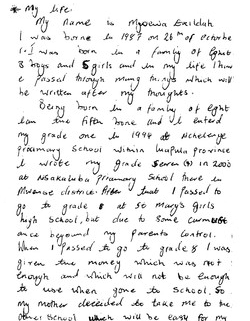 * My life.
My name is Mwewa Exildah
I was borne in 1987 on 26th of october
I was born in a family of eight
3 boys and 5 girls and in my life I have
passed through many things which will
be written after my thoughts.
Being born in a family of eight
I am the fifth borne and I enterd
my grade one in 1994 at Nchelenge
primary School within luapula province
I wrote my grade seven (7) in 2000
at Nsakaluba primary School there in
Mwense district. After that I passed to
go to grade 8 at St Mary's Girls
high School, but due to some
ance beyound my parents control.
When I passed to go to grade 8 I was
given the money which was not
enough and which will not be enough
to use when gone to School, so
my mother decided to take me to the
other School which will be easy for my